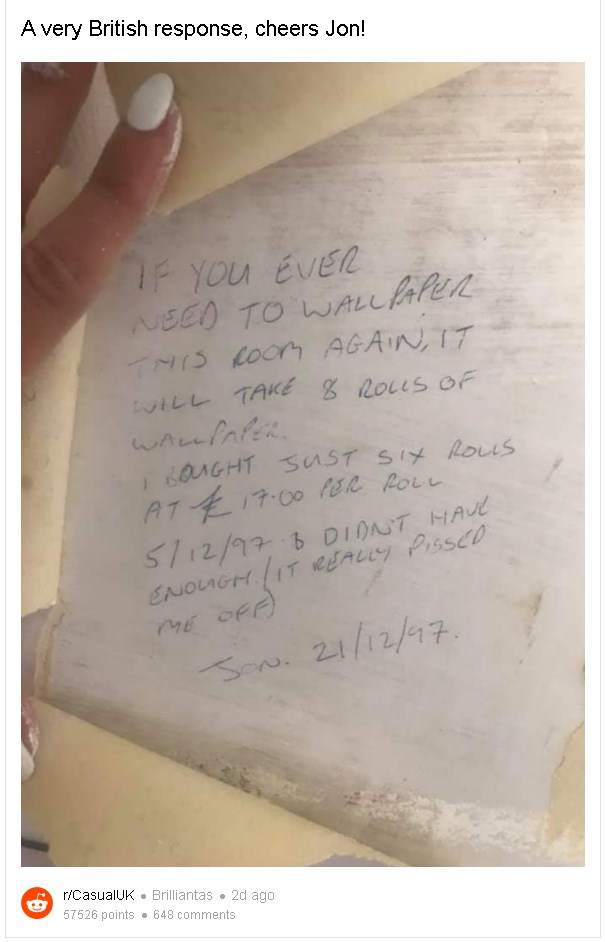 A very British response, cheers Jon!
IF YOU EVER
NEED TO WALLPAPER
THIS ROOM AGAIN, IT
WILL TAKE 8 ROLLS OF
WALLPAPER.
I BOUGHT JUST SIX ROLLS
AT £17.00 PER ROLL
5/12/97 & DIDNT HAVE
ENOUGH. (IT REALLY PISSED
ME OFF)
JON. 21/12/97.
r/CasualUK • Brilliantas • 2d ago
57526 points • 648 comments